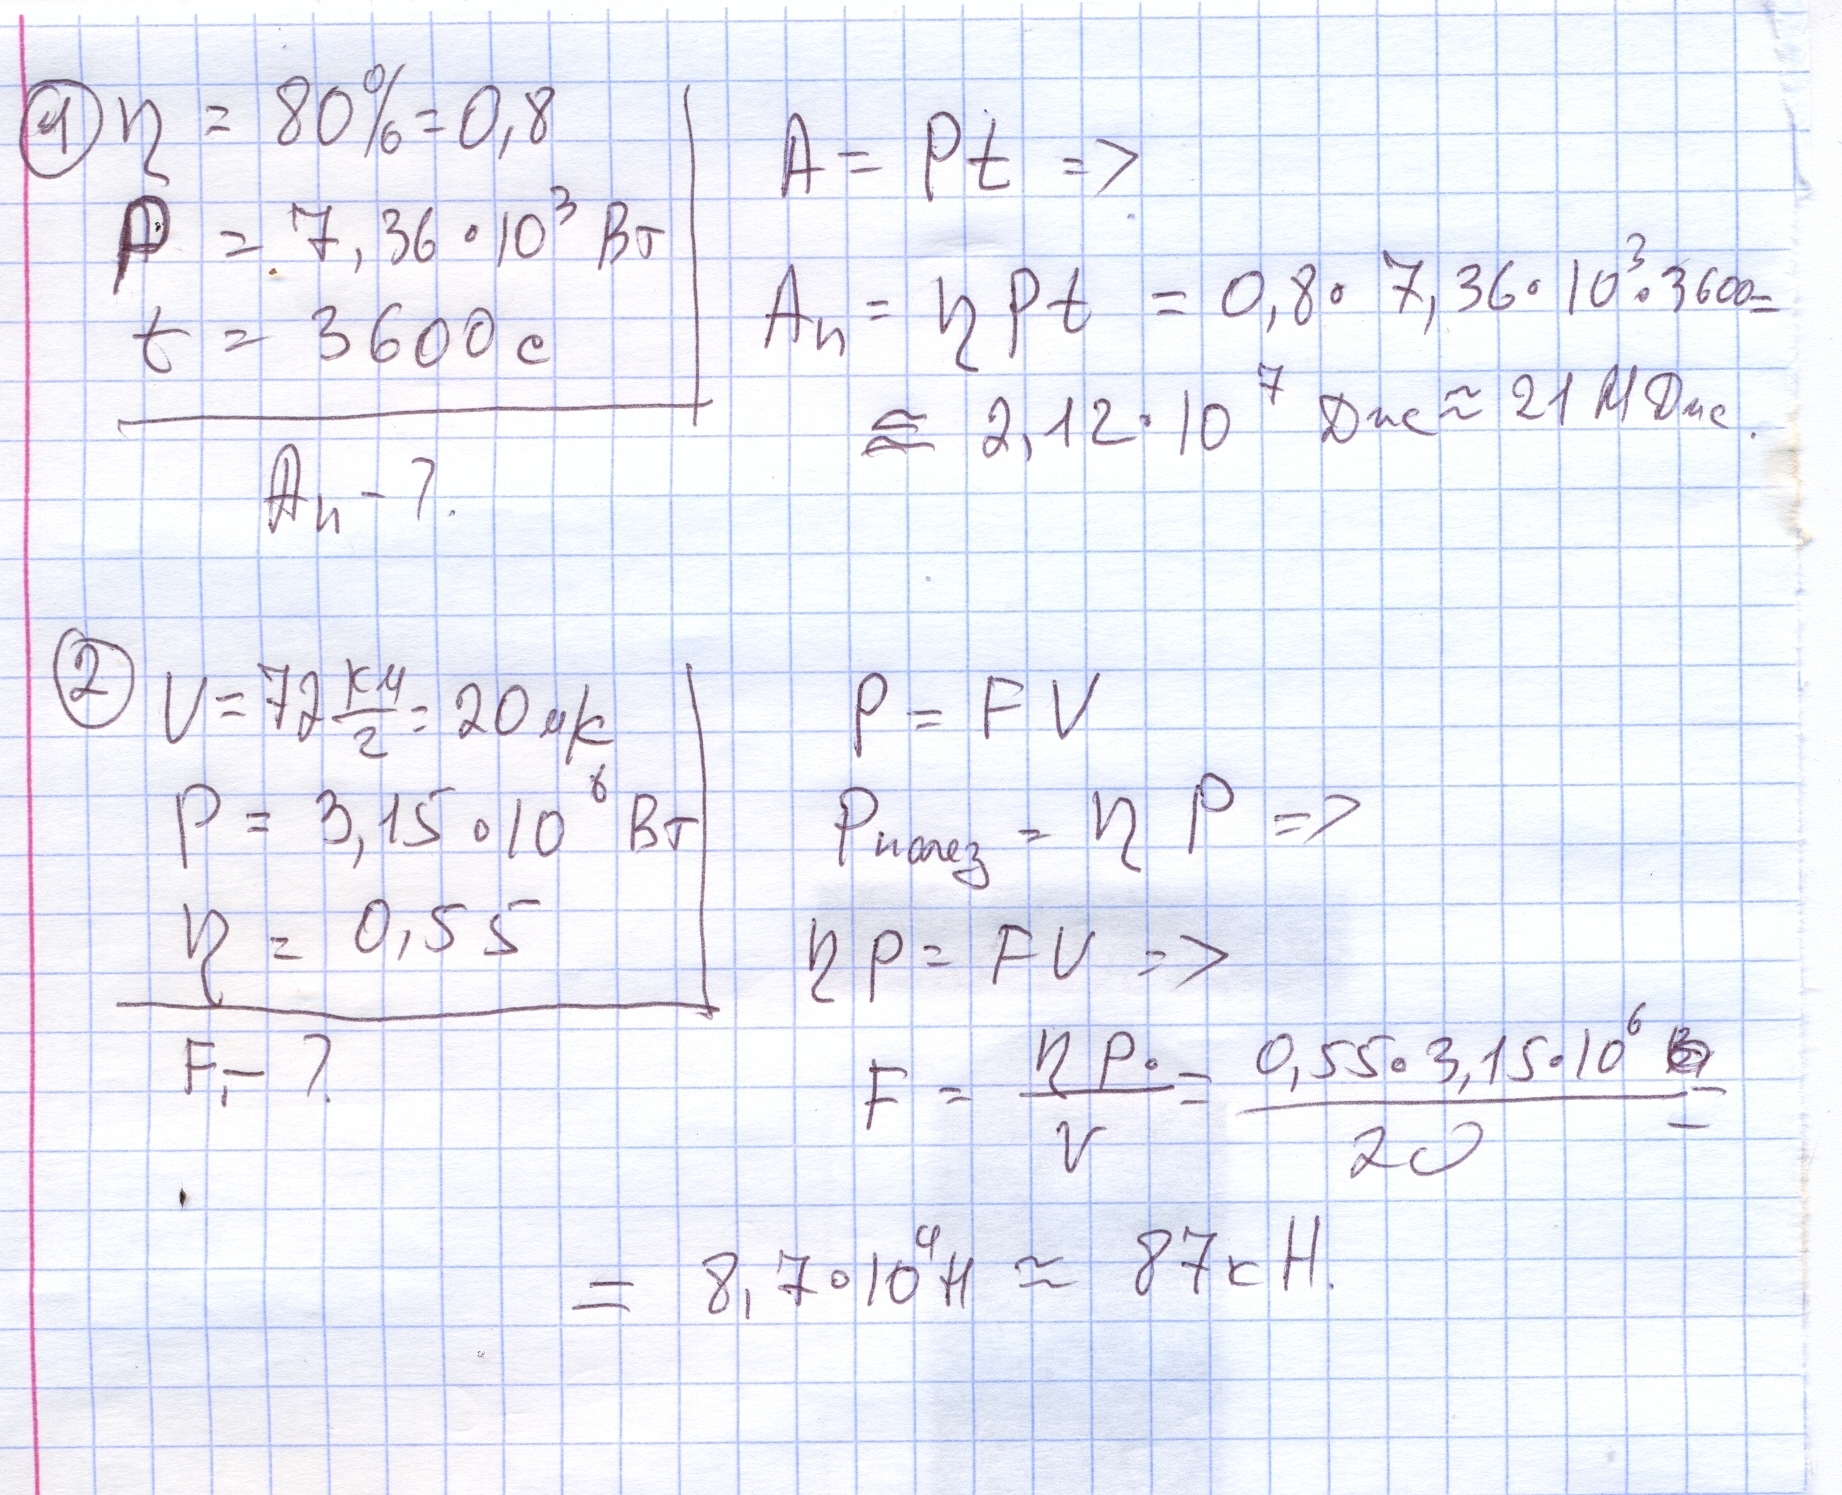 1 η = 80% = 0,8
P = 7,36 · 10³ Вт
t = 3600 с
Aп - ?
A = Pt =>
Aп = ηPt = 0,8 · 7,36 · 10³ · 3600 =
≅ 2,12 · 10⁷ Дж ≈ 21 МДж.
2 V = 72 км/г = 20 м/с
P = 3,15 · 10⁶ Вт
η = 0,55
Fт - ?
P = FV
Pполез = ηP =>
ηP = FV =>
F = ηP/V = 0,55 · 3,15 · 10⁶/20 =
= 8,7 · 10⁴ Н ≈ 87 кН.